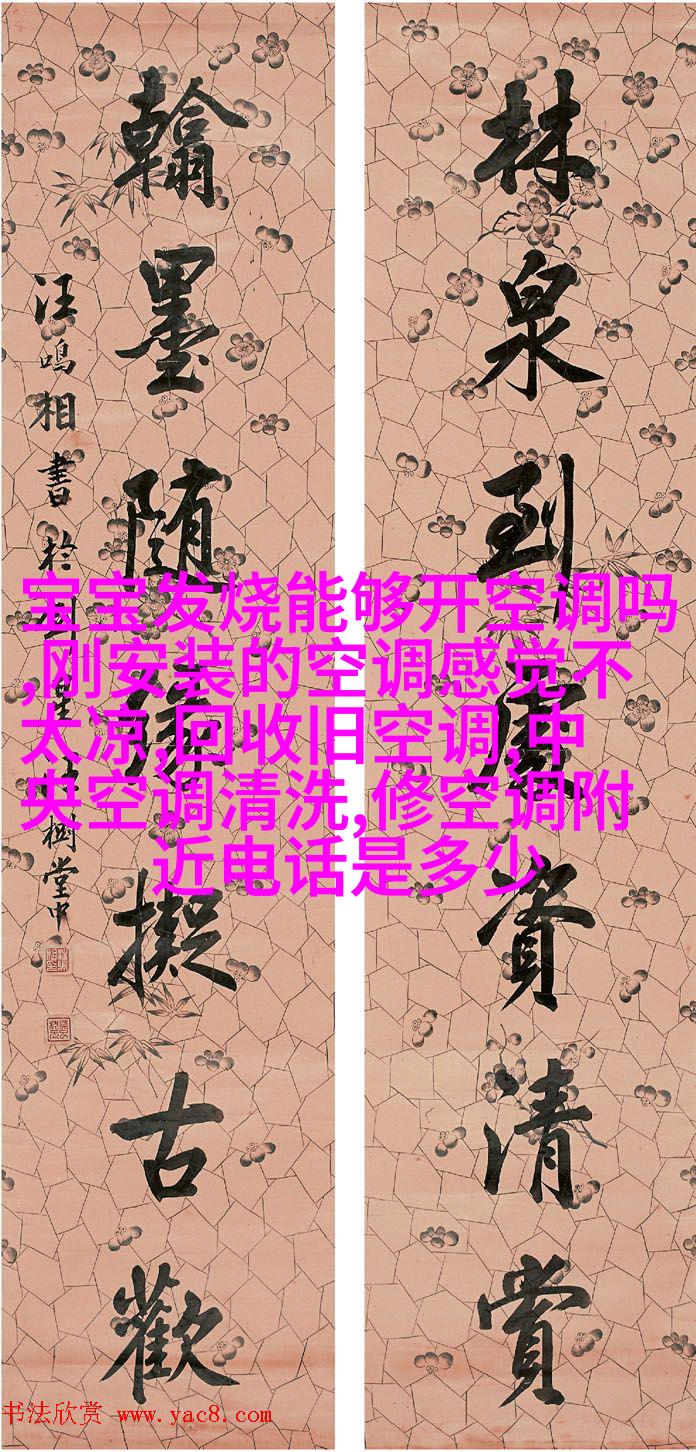 林泉到處資清賞
翰墨隨緣擬古歡
汪鳴相書於樹堂中
宝宝发烧能够开空调吗
,刚安装的空调感觉不
太凉,回收旧空调,中
央空调清洗,修空调附
近电话是多少
书法欣赏 www.yac8.com